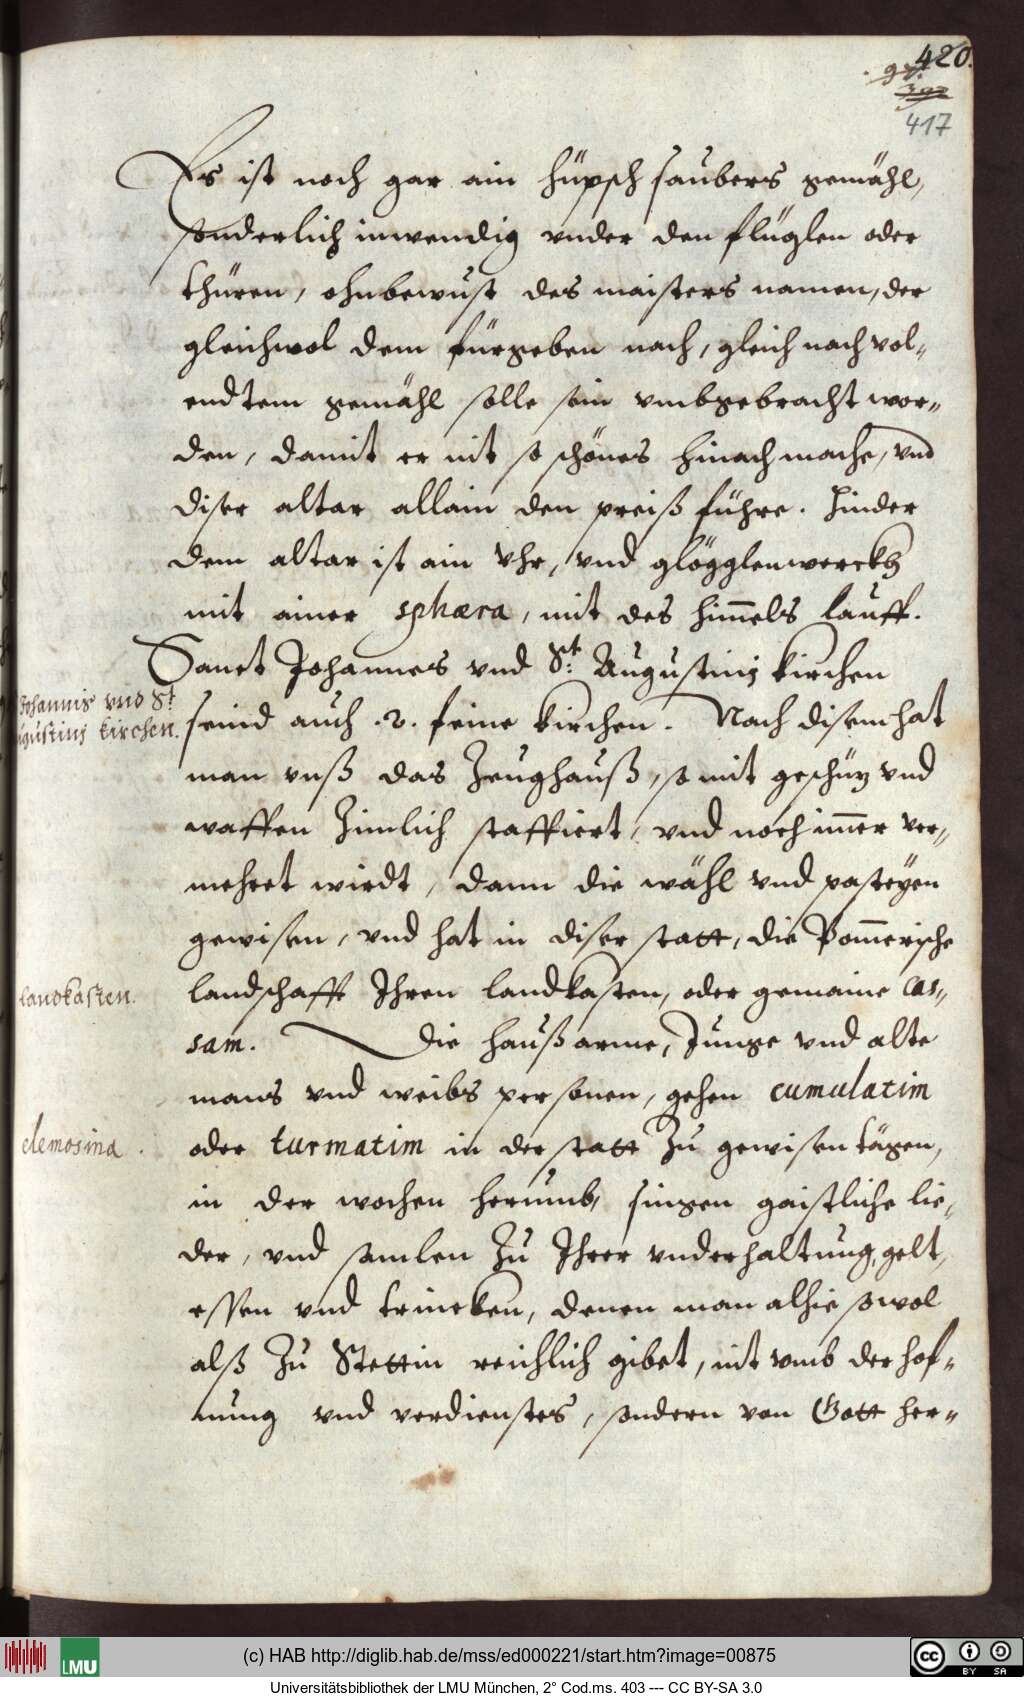 420.
417
Es ist noch gar ain hüpsch saubers gemähl,
sonderlich inwendig vnder den flüglen oder
thüren, ohnbewust des maisters namen, der
gleichwol dem fürgeben nach, gleich nach vol-
endtem gemähl solle sein vmbgebracht wor-
den, damit er nit so schönes hinach mache, vnd
diser altar allain den preiß führe. Hinder
dem altar ist ain Vhr, vnd glögglenwerckh
mit ainer sphæra, mit des him̄els lauff.
Sanct Johannes vnd St: Augustinj kirchen
Johannis vnd St:
Augustinj kirchen.
seind auch .2. feine kirchen. Nach disem hat
man vnß das Zeughauß, so mit geschüz vnd
waffen Zimlich staffiert, vnd noch im̄er ver-
mehret wirdt, dann die wähl vnd pasteyen
gewisen, vnd hat in diser statt, die Pom̄erische
landkasten.
landschafft Ihren landkasten, oder gemaine cas-
sam. Die haußarme, Junge vnd alte
mans vnd weibs personen, gehen cumulatim
elemosina.
oder turmatim in der statt Zu gewisen tägen,
in der wochen herumb, singen gaistliche lie-
der, vnd samlen Zu Ihrer vnderhaltung, gelt,
essen vnd trincken, denen man alhie sowol
alß Zu Stettin reichlich gibet, nit vmb der hof-
nung vnd verdienstes, sondern von Gott her-
(c) HAB http://diglib.hab.de/mss/ed000221/start.htm?image=00875
LMU
cc BY SA
Universitätsbibliothek der LMU München, 2° Cod.ms. 403 --- CC BY-SA 3.0